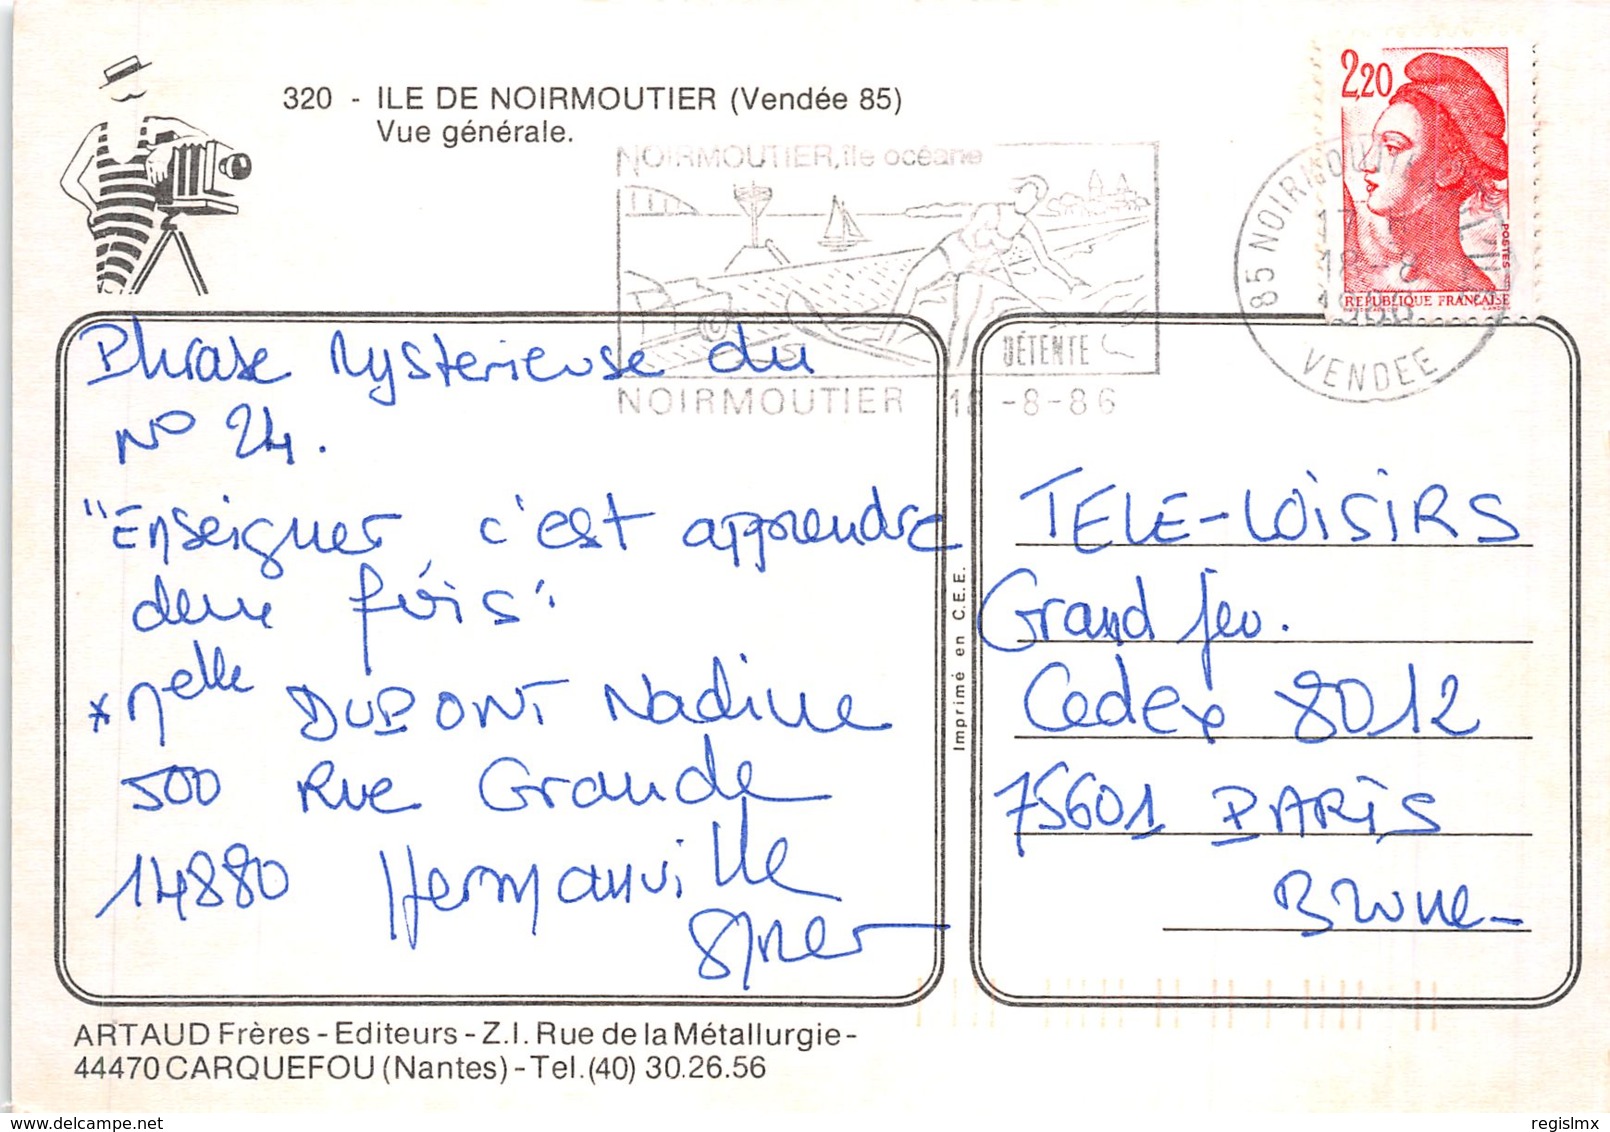 320 - ILE DE NOIRMOUTIER (Vendée 85)
Vue générale.
2,20
POSTES
REPUBLIQUE FRANÇAISE
NOIRMOUTIER, île océane
DÉTENTE
NOIRMOUTIER 18-8-86
85 NOIRMOUTIER
18-8
VENDEE
Phrase Mystérieuse du
N° 24.
"Enseigner, c'est apprendre
deux fois".
* Melle DUPONT Nadine
500 Rue Grande
14880 Hermanville
S/Mer
Imprimé en C.E.E.
TELE-LOISIRS
Grand Jeu.
Cedex 8012
75601 PARIS
Brune
ARTAUD Frères - Editeurs - Z.I. Rue de la Métallurgie -
44470 CARQUEFOU (Nantes) - Tel. (40) 30.26.56
regislmx